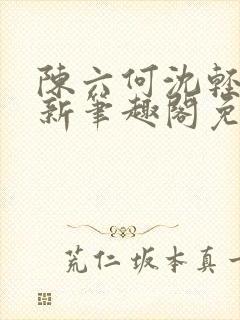 陳六何沈輕
新筆趣閣免
荒仁坂本真一